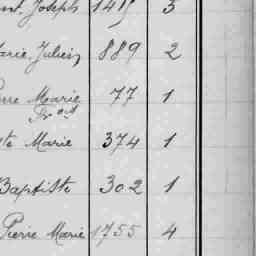 nt. Joseph 1419 3
Marie. Julien 889 2
rre Marie 77 1
te Marie 374 1
Baptiste 302 1
Pierre Marie 1755 4